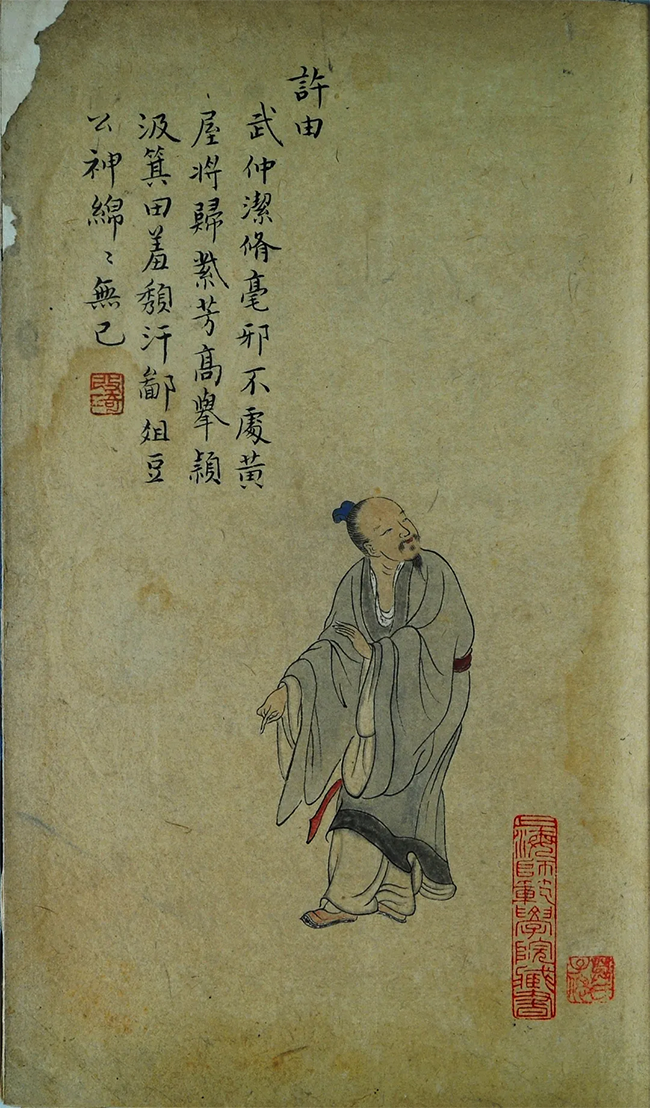 許由
武仲潔脩毫邪不處黃
屋將歸絜芳高舉潁
汲箕田羞頹汗鄙俎豆
公神綿〻無已
改琦
上海師範學院藏書